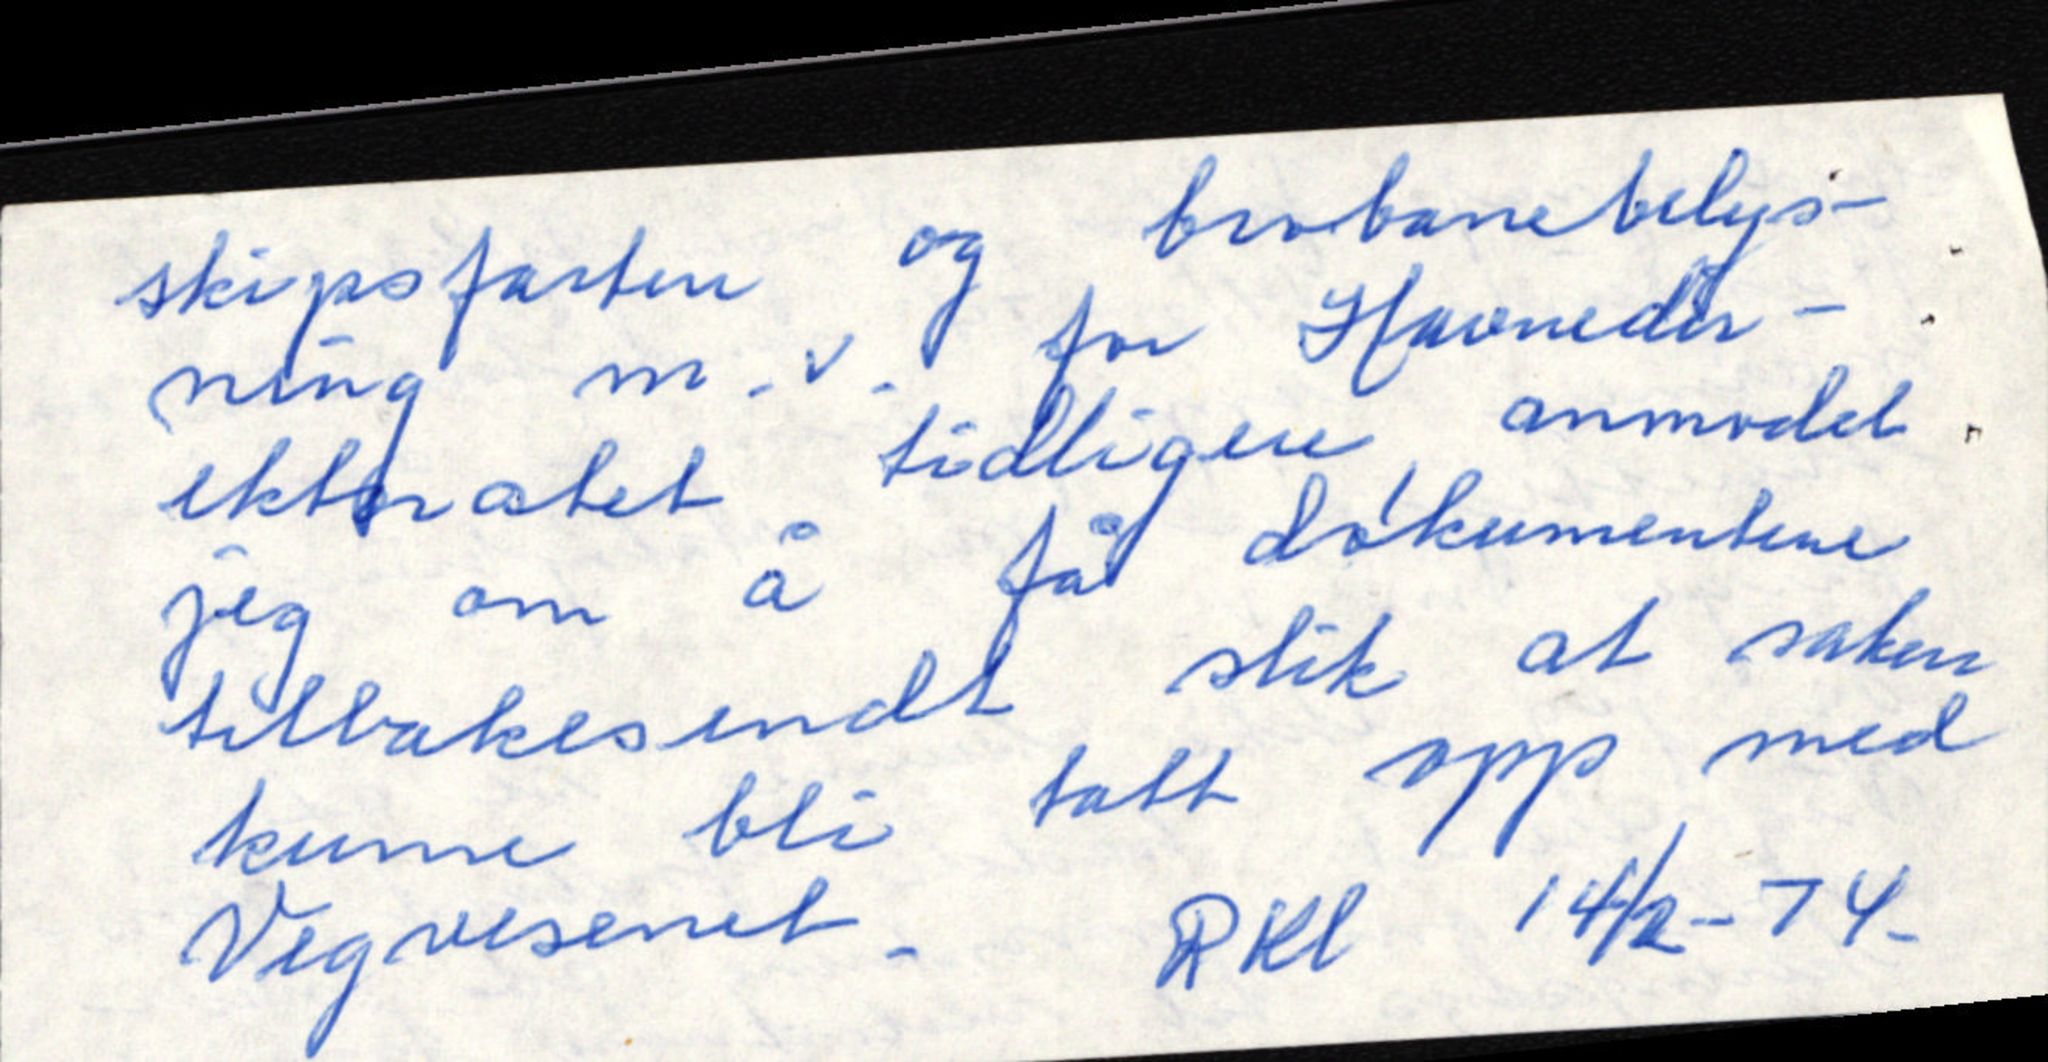 skipsfarten og brobanebelys-
ning m.v. for Havnedir-
ektoratet tidligere anmodet
jeg om å få dokumentene
tilbakesendt slik at saken
kunne bli tatt opp med
Vegvesenet. RKl 14/2-74.